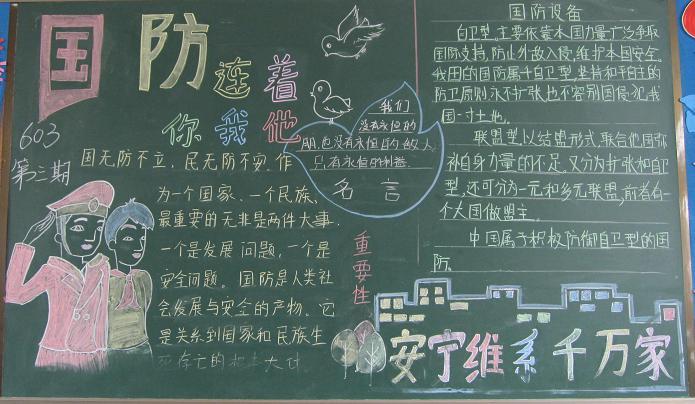 国防
连着
你我他
603
第三期
国无防不立，民无防不安。作
为一个国家、一个民族，
最重要的无非是两件大事，
一个是发展问题，一个是
安全问题。国防是人类社
会发展与安全的产物。它
是关系到国家和民族生
死存亡的
大计
重要性
我们
没有永恒的
朋，也没有永恒的敌人，
只有永恒的利益。
名言
国防设备
自卫型，主要依靠本国力量，广泛争取
国际支持，防止外敌入侵，维护本国安全。
我国的国防属于自卫型，坚持和平自主的
防卫原则，永不扩张，也不容别国侵犯我
国一寸土地。
联盟型，以结盟形式，联合他国弥
补自身力量的不足。又分为扩张和自卫
型，还可分为一元和多元联盟，前者有一
个大国做盟主。
中国属于积极防御自卫型的国
防。
安宁维系千万家